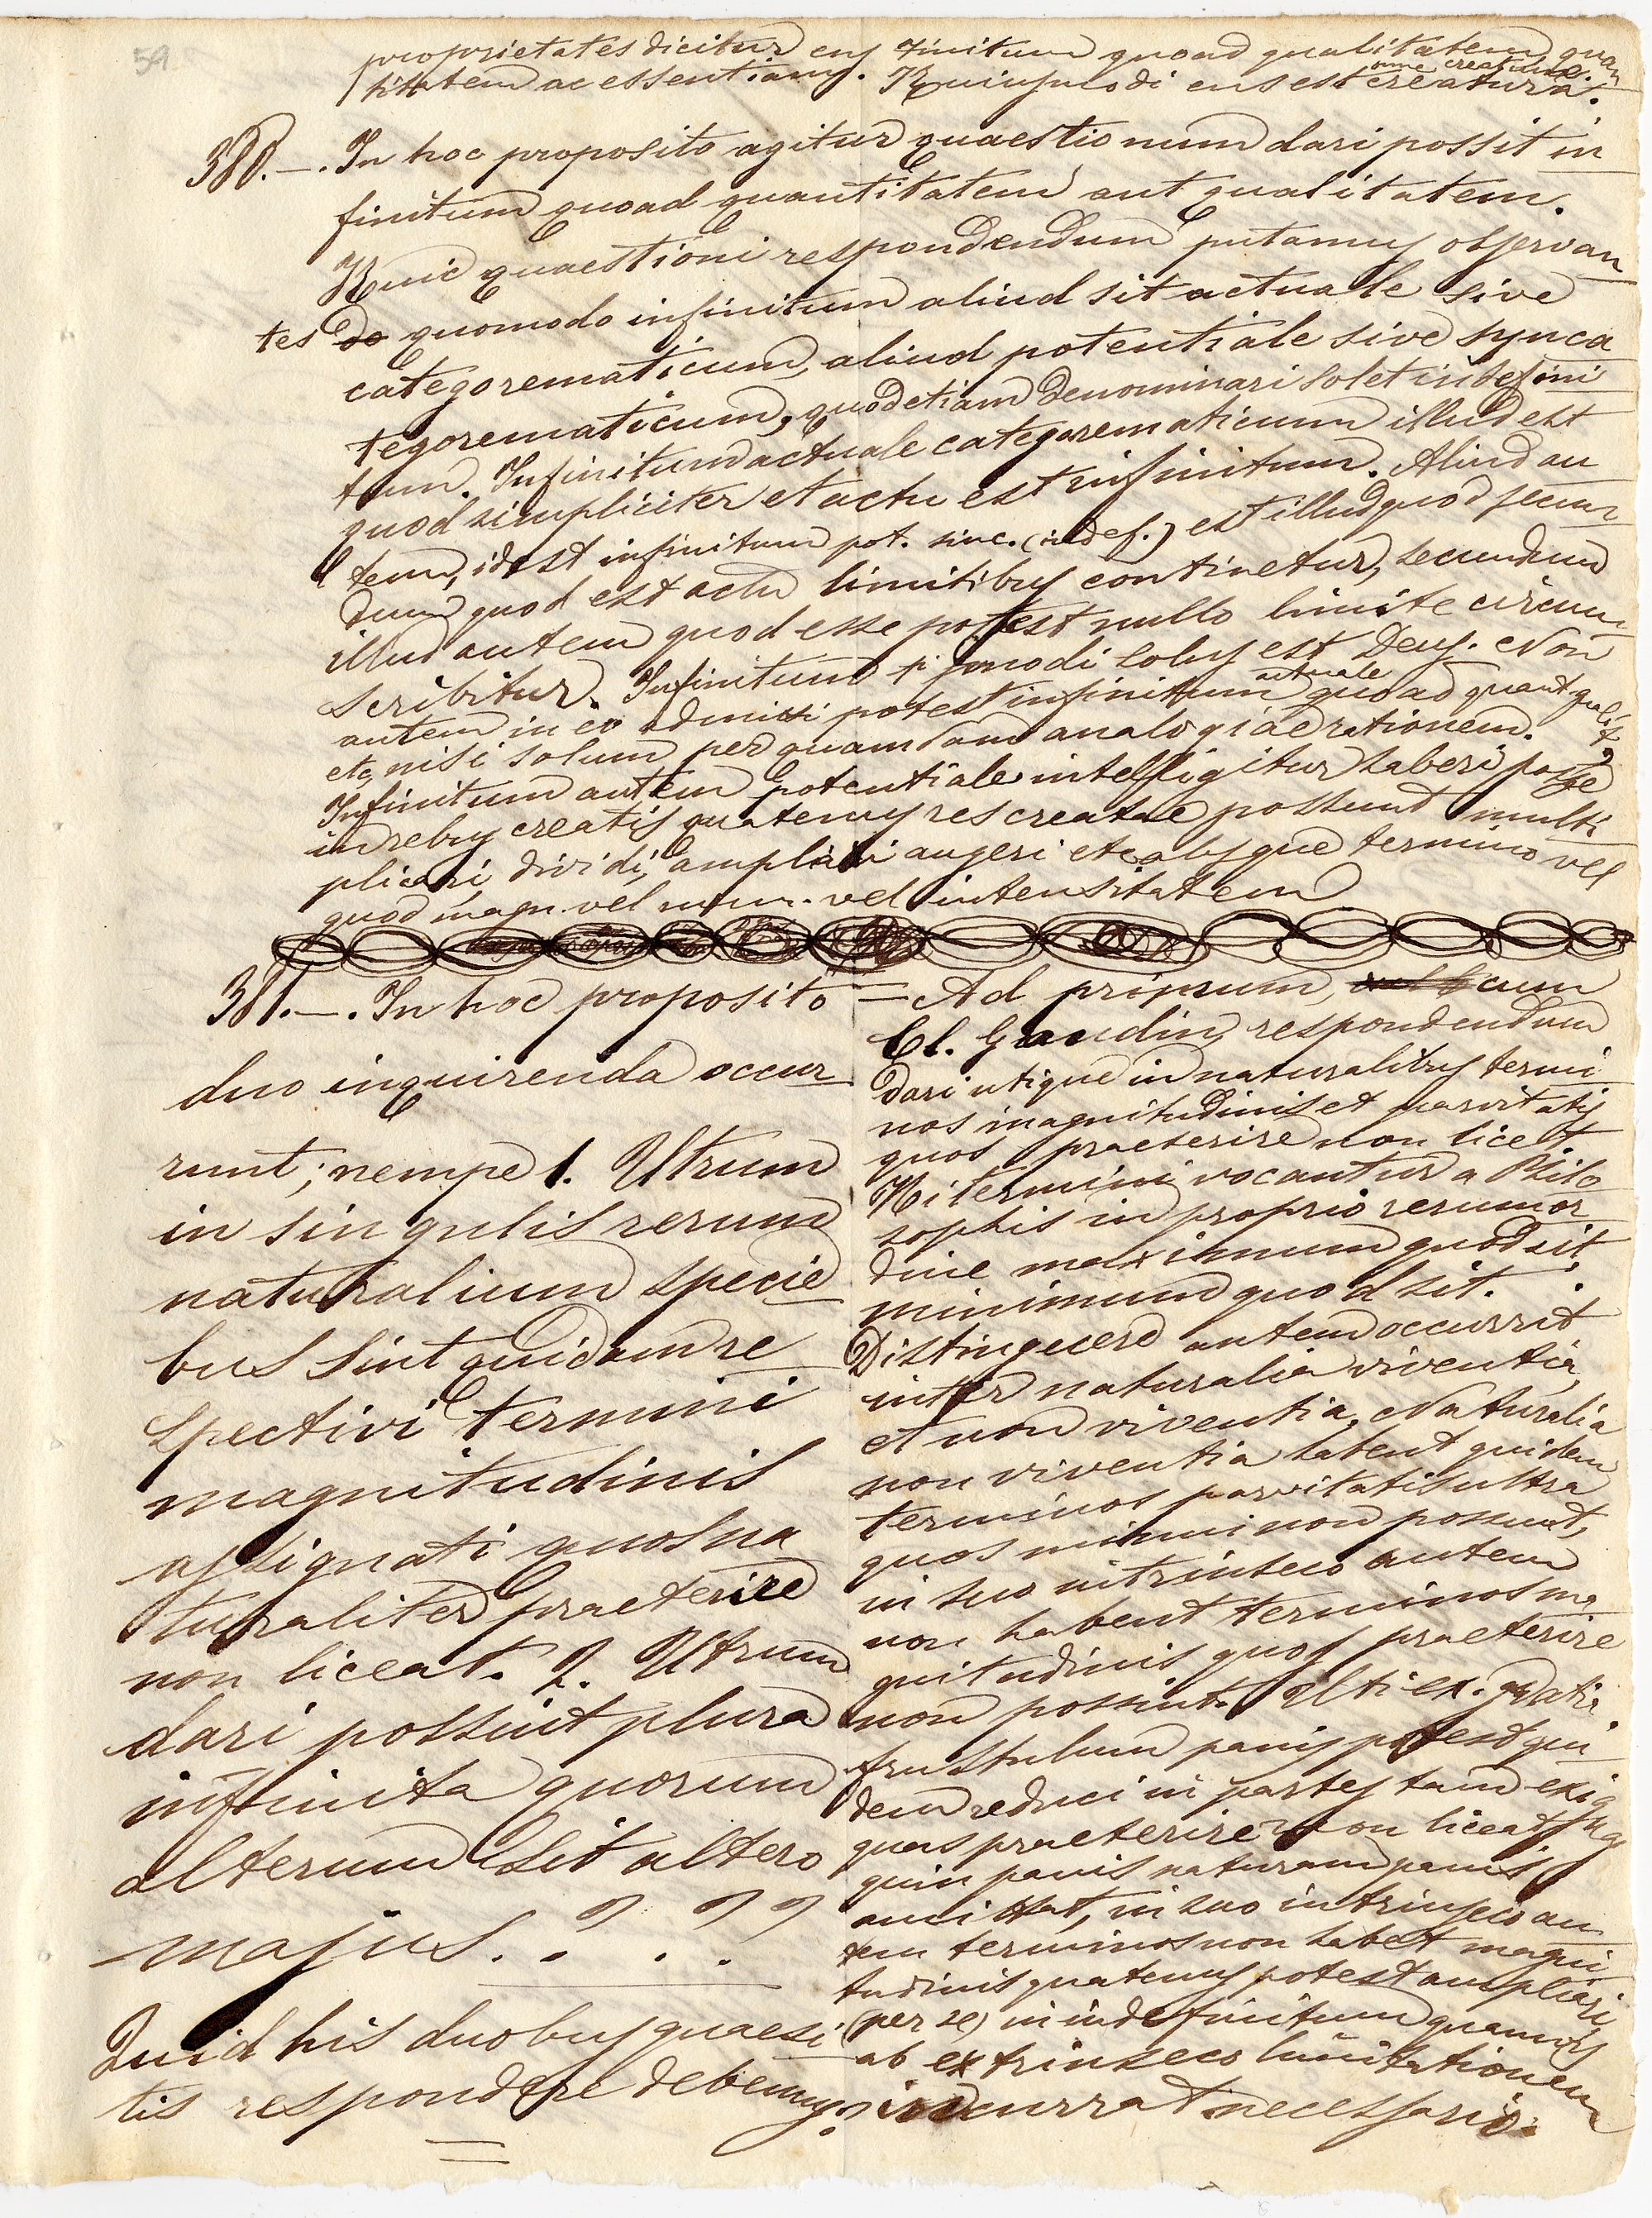 59
proprietates dicitur ens finitum quoad qualitatem quan
titatem ac essentiam. Huiusmodi ens est creatura.
omne creatum.
380.—. In hoc proposito agitur quaestio num dari possit in
finitum quoad quantitatem aut qualitatem.
Huic quaestioni respondendum putamus observan
tes quomodo infinitum aliud sit actuale sive
categorematicum, aliud potentiale sive synca
tegorematicum, quod etiam denominari solet indefini
tum. Infinitum actuale categorematicum illud est
quod simpliciter et actu est infinitum. Aliud au
tem, id est infinitum pot. sinc. (indef.) est illud quod secun
dum quod est actu limitibus continetur, secundum
illud autem quod esse potest nullo limite circum
scribitur. Infinitum modi solus est Deus. Non
autem in eo admitti potest infinitum actuale quoad quant. qualit.
etc, nisi solum per quamdam analogiae rationem.
Infinitum autem potentiale intelligitur haberi posse
in rebus creatis quatenus res creatae possunt multi
plicari, dividi, ampliari augeri etc absque termino vel
quod magn. vel num. vel intensitatem
381.—. In hoc proposito
duo inquirenda occur
runt; nempe 1. Utrum
in singulis rerum
naturalium specie
bus sint quidam re
spectivi termini
magnitudinis
assignati quos na
turaliter praeterire
non liceat. 2. Utrum
dari possint plura
infinita quorum
alterum sit altero
majus. ? ? ?
Quid his duobus quaesi
tis respondere debemus?
— Ad primum, cum
Cl. Gaudin, respondendum
dari utique in naturalibus termi
nos magnitudinis et parvitatis
quos praeterire non licet
Hi termini vocantur a Philo
sophis in proprio rerum or
dine maximum quod sit,
minimum quod sit.
Distinguere autem occurrit
inter naturalia viventia,
et non viventia. Naturalia
non viventia habent quidem
terminos parvitatis ultra
quos minui non possunt,
in suo intrinseco autem
non habent terminos ma
gnitudinis quos praeterire
non possint. Uti ex. gratia
frustulum panis potest qui
dem reduci in partes tam exiguas
quas praeterire non liceat
quin panis naturam panis
amittat, in suo intrinseco au
tem terminos non habet magni
tudinis quatenus potest ampliari
(per se) in indefinitum quamvis
ab extrinseco limitationem
incurrat necessario.